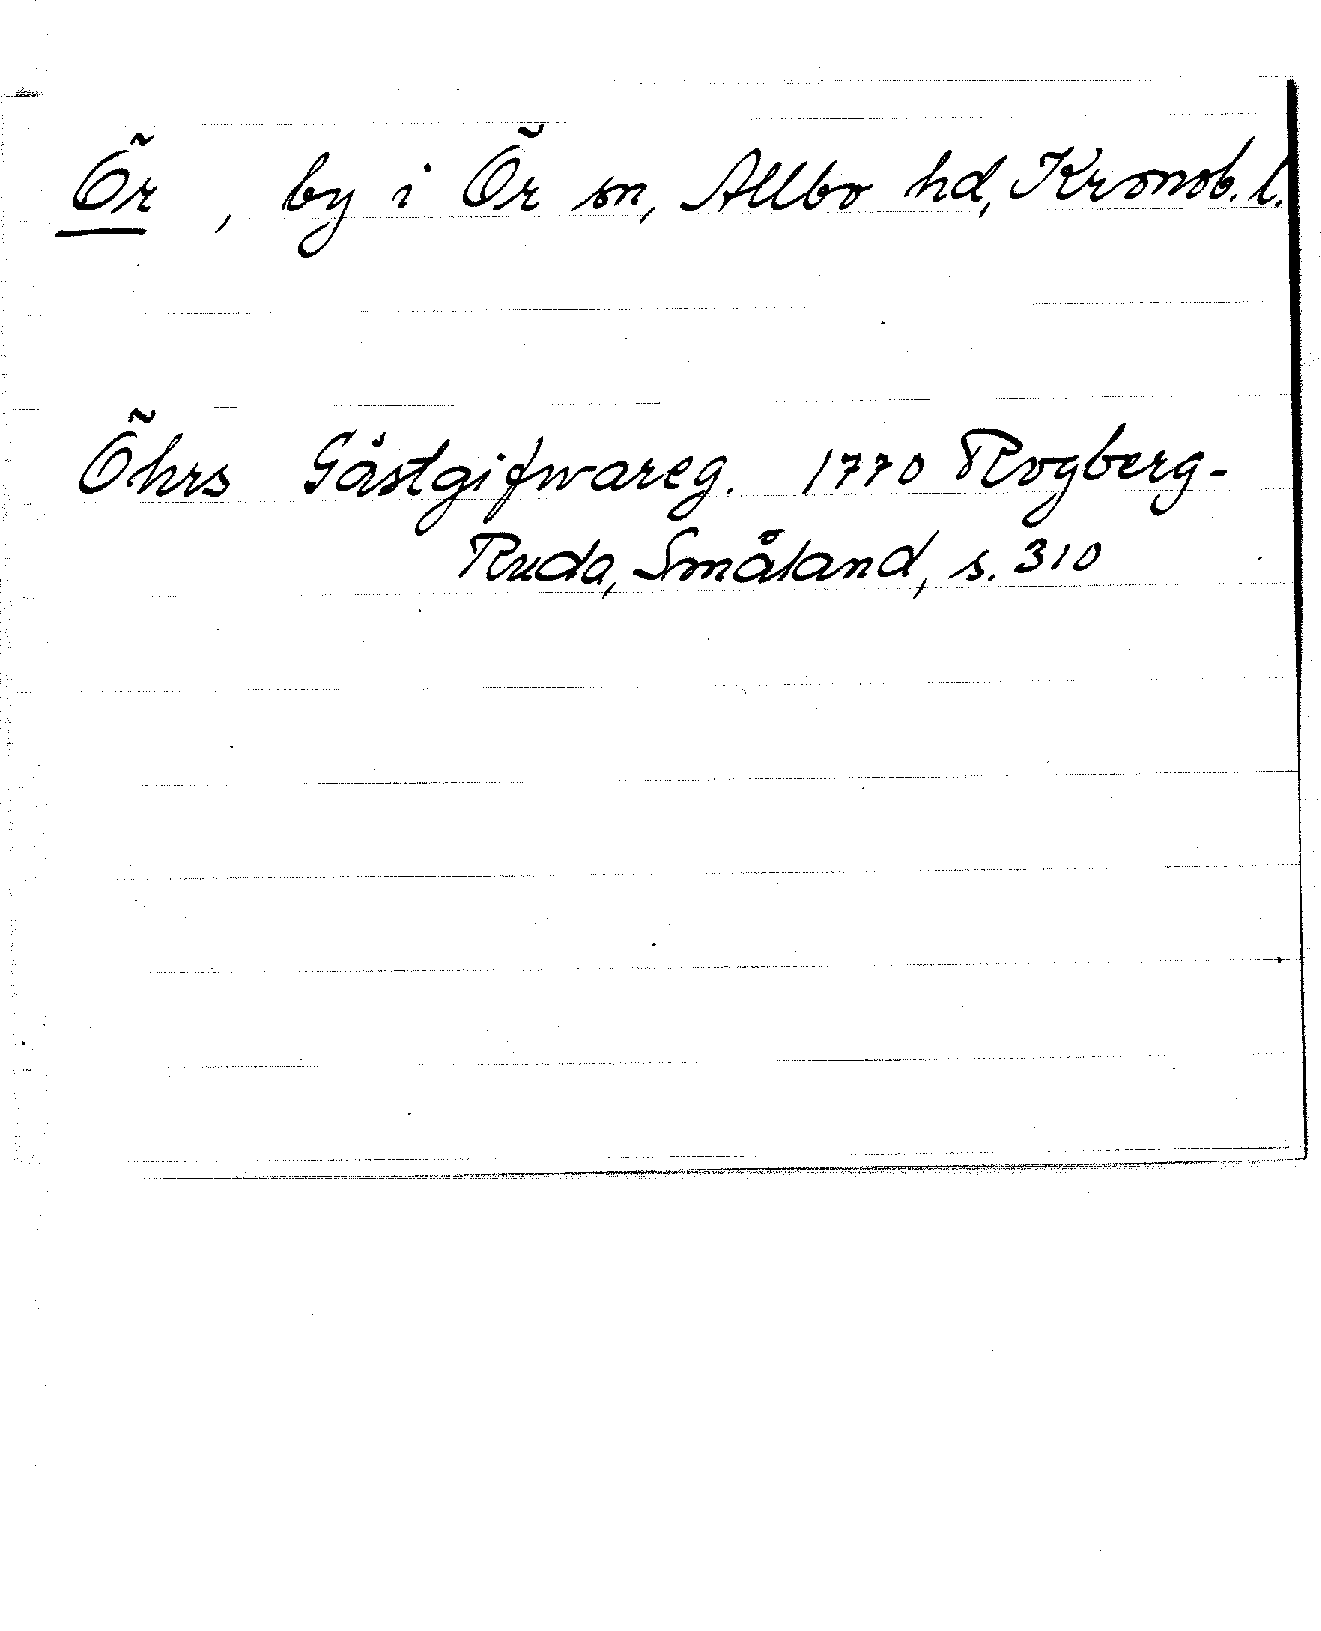 Ör, by i Ör sn, Allbo hd, Kronob. l.
Öhrs Gästgifwareg. 1770 Rogberg-
Ruda, Småland, s. 310